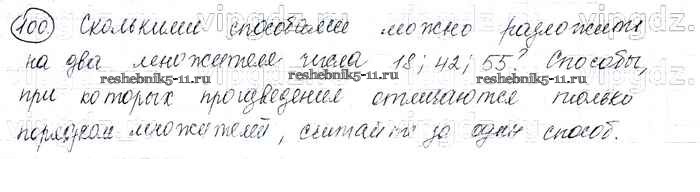 100) Сколькими способами можно разложить
на два множителя числа 18; 42; 55? Способы,
reshebnik5-11.ru reshebnik5-11.ru
при которых произведения отличаются только
reshebnik5-11.ru
порядком множителей, считайте за один способ.